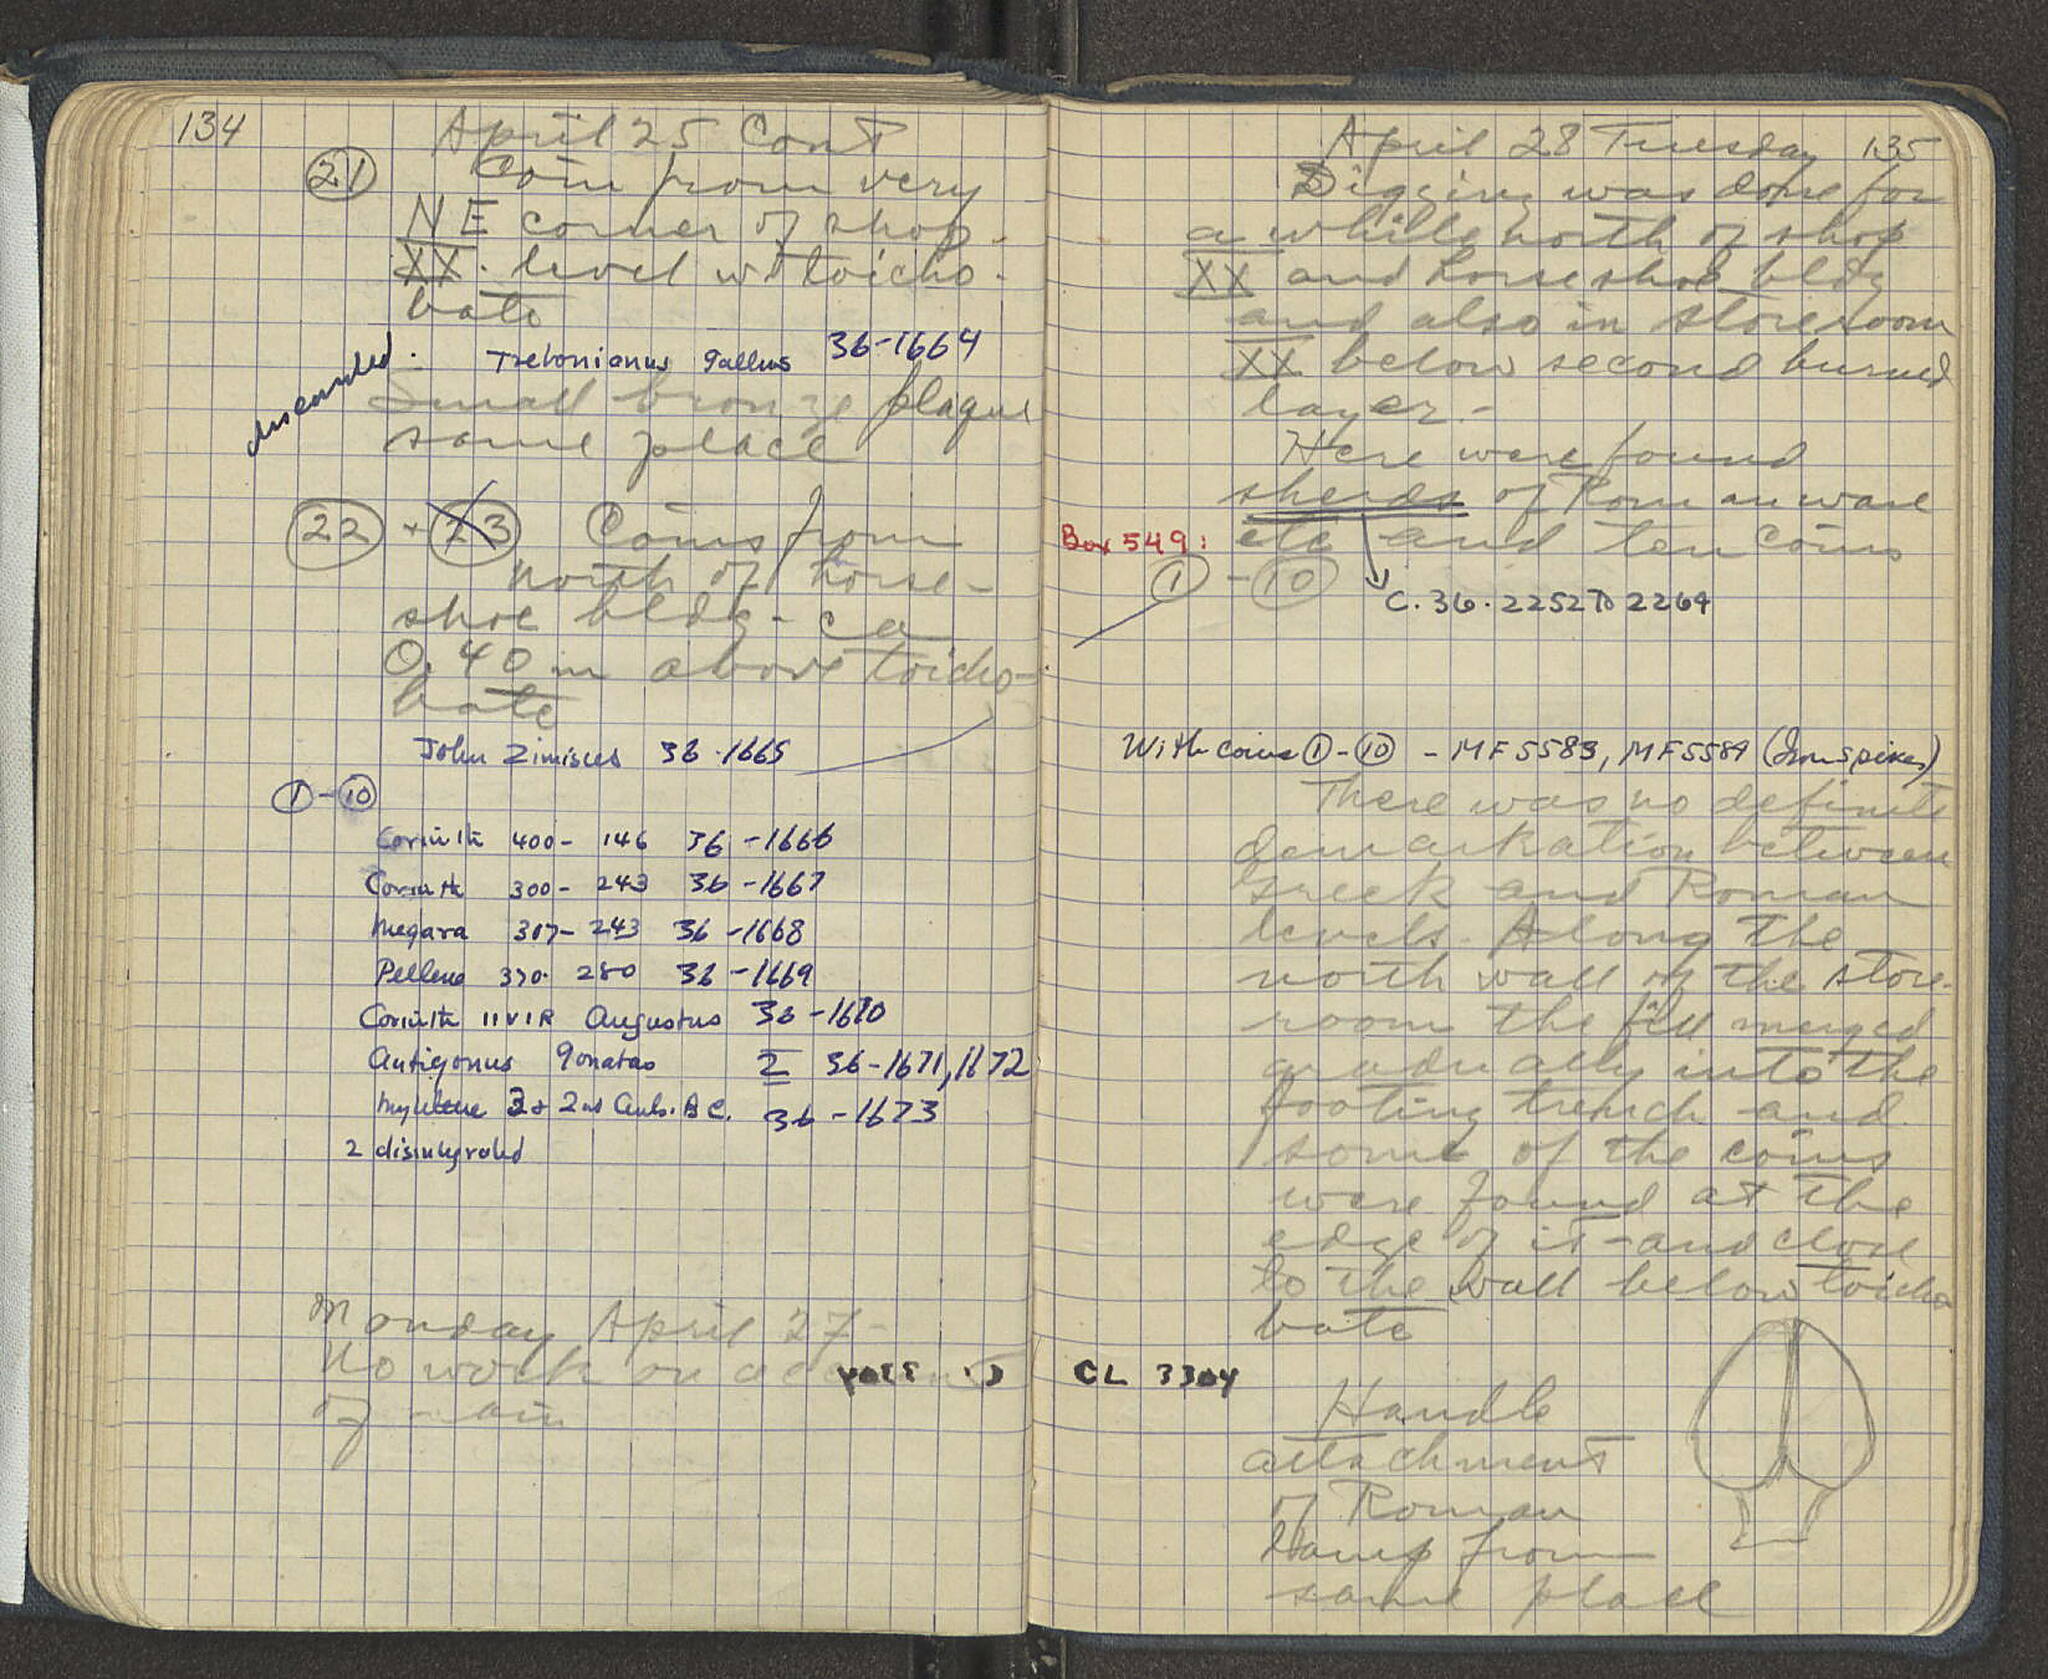 134
April 25 Cont
21 Coin from very
NE corner of shop
XX. level wt toicho-
bate
Trebonianus Gallus 36-1664
discarded.
Small bronze plaque
same place
22 + 23 Coins from
north of horse-
shoe bldg - ca
0.40 m above toicho-
bate
John Zimisces 36-1665
1 - 10
Corinth 400- 146 36-1666
Corinth 300- 243 36-1667
Megara 307- 243 36-1668
Pellene 370- 280 36-1669
Corinth IIVIR Augustus 36-1670
Antigonus Gonatas 2 36-1671, 1672
Mytilene 3 & 2nd Cents. B.C. 36-1673
2 disintegrated
Monday April 27-
No work on account
of rain
April 28 Tuesday 135
Digging was done for
a while north of shop
XX and horseshoe bldg
and also in storeroom
XX below second burned
layer.-
Here were found
sherds of Roman ware
Box 549: etc and ten coins
1 - 10
C. 36. 2252 to 2264
With coins 1 - 10 - MF 5583, MF 5584 (Iron spikes)
There was no definite
demarkation between
Greek and Roman
levels. Along the
north wall of the store-
room the fill merged
gradually into the
footing trench and
some of the coins
were found at the
edge of it - and close
to the wall below toicho
bate
CL 3304
Handle
attachment
of Roman
lamp from
same place